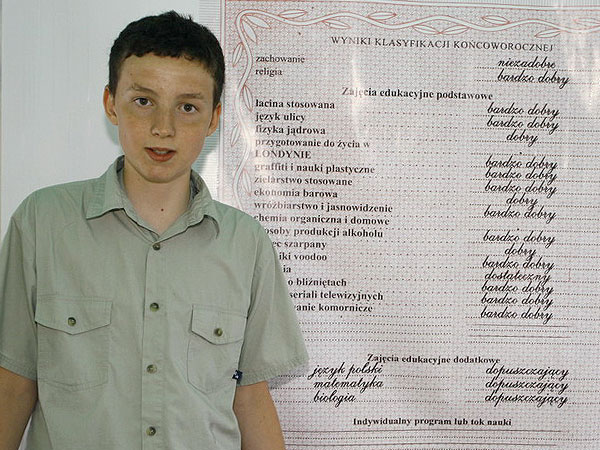 WYNIKI KLASYFIKACJI KOŃCOWOROCZNEJ
zachowanie niezadobre
religia bardzo dobry
Zajęcia edukacyjne podstawowe
łacina stosowana bardzo dobry
język ulicy bardzo dobry
fizyka jądrowa dobry
przygotowanie do życia w
LONDYNIE bardzo dobry
graffiti i nauki plastyczne bardzo dobry
zielarstwo stosowane bardzo dobry
ekonomia barowa dobry
wróżbiarstwo i jasnowidzenie bardzo dobry
chemia organiczna i domowe
sposoby produkcji alkoholu bardzo dobry
szarpany dobry
voodoo bardzo dobry
dostateczny
o bliźniętach bardzo dobry
seriali telewizyjnych bardzo dobry
komornicze bardzo dobry
Zajęcia edukacyjne dodatkowe
język polski dopuszczający
matematyka dopuszczający
biologia dopuszczający
Indywidualny program lub tok nauki